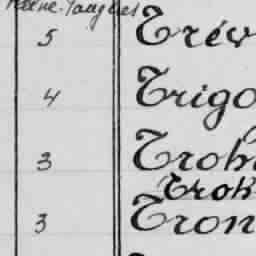 5 Trév
4 Trigo
3 Troh
Trok
3 Tron